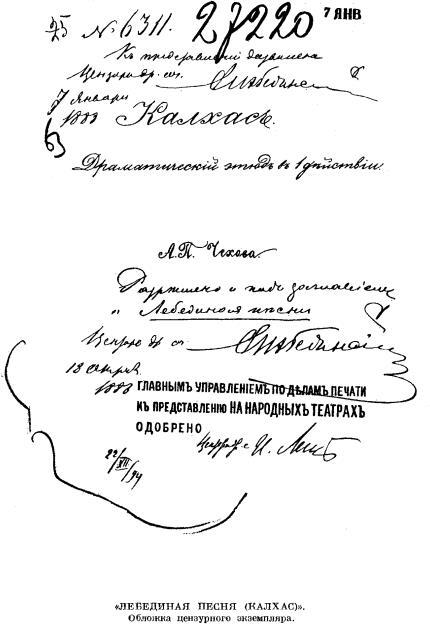 25 № 6311. 27220 7 ЯНВ
Къ представленію дозволено
Цензоръ др. соч.
7 Января
1888 Калхасъ.
Драматическій этюдъ въ 1 дѣйствіи.
А.П. Чехова.
Разрешено и подъ заглавіемъ
„Лебединая песня
Цензоръ др. соч.
1888
ГЛАВНЫМЪ УПРАВЛЕНІЕМЪ ПО ДѢЛАМЪ ПЕЧАТИ
КЪ ПРЕДСТАВЛЕНІЮ НА НАРОДНЫХЪ ТЕАТРАХЪ
ОДОБРЕНО
22/XII/94
«ЛЕБЕДИНАЯ ПЕСНЯ (КАЛХАС)».
Обложка цензурного экземпляра.